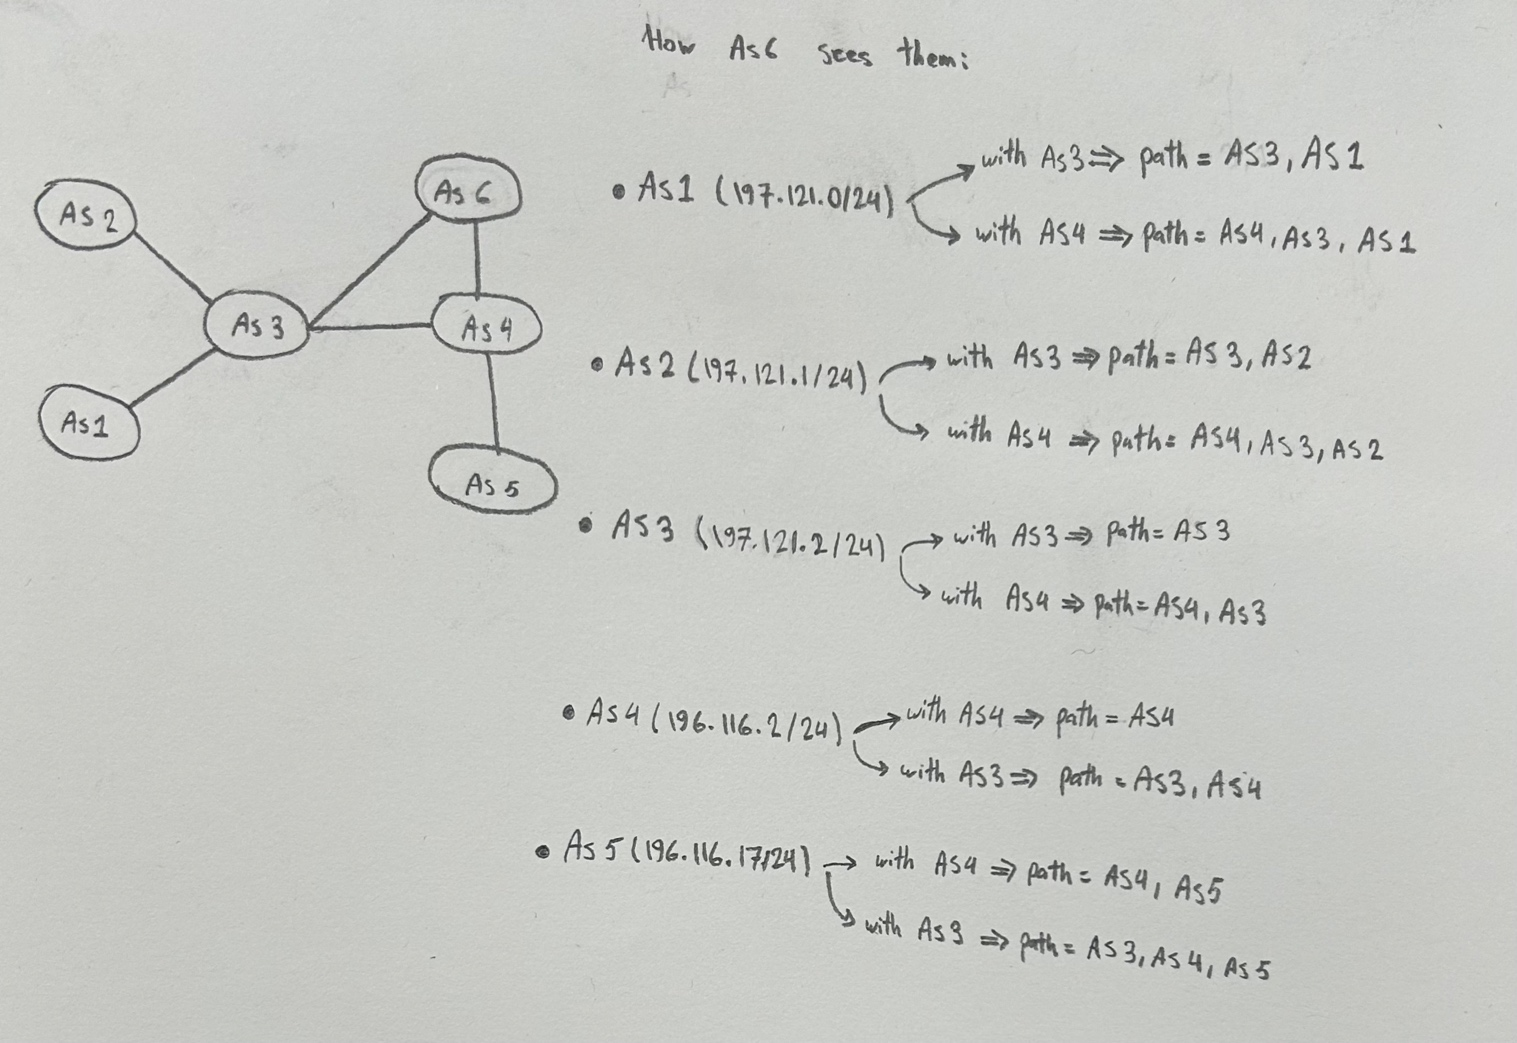 How As6 sees them:
As
As 2
As 6
As 3
As 4
As1
As 5
• As1 (197.121.0/24)
with As3 ⇒ path = AS3, AS1
with AS4 ⇒ path = AS4, As3, AS1
• As2 (197.121.1/24)
with As3 ⇒ path = AS3, AS2
with As4 ⇒ path = AS4, AS3, AS2
• AS3 (197.121.2/24)
with AS3 ⇒ path = AS3
with As4 ⇒ path = AS4, As3
• As4 (196.116.2/24)
with AS4 ⇒ path = AS4
with AS3 ⇒ path = As3, As4
• As5 (196.116.17/24)
with AS4 ⇒ path = AS4, As5
with As3 ⇒ path = AS3, As4, As5